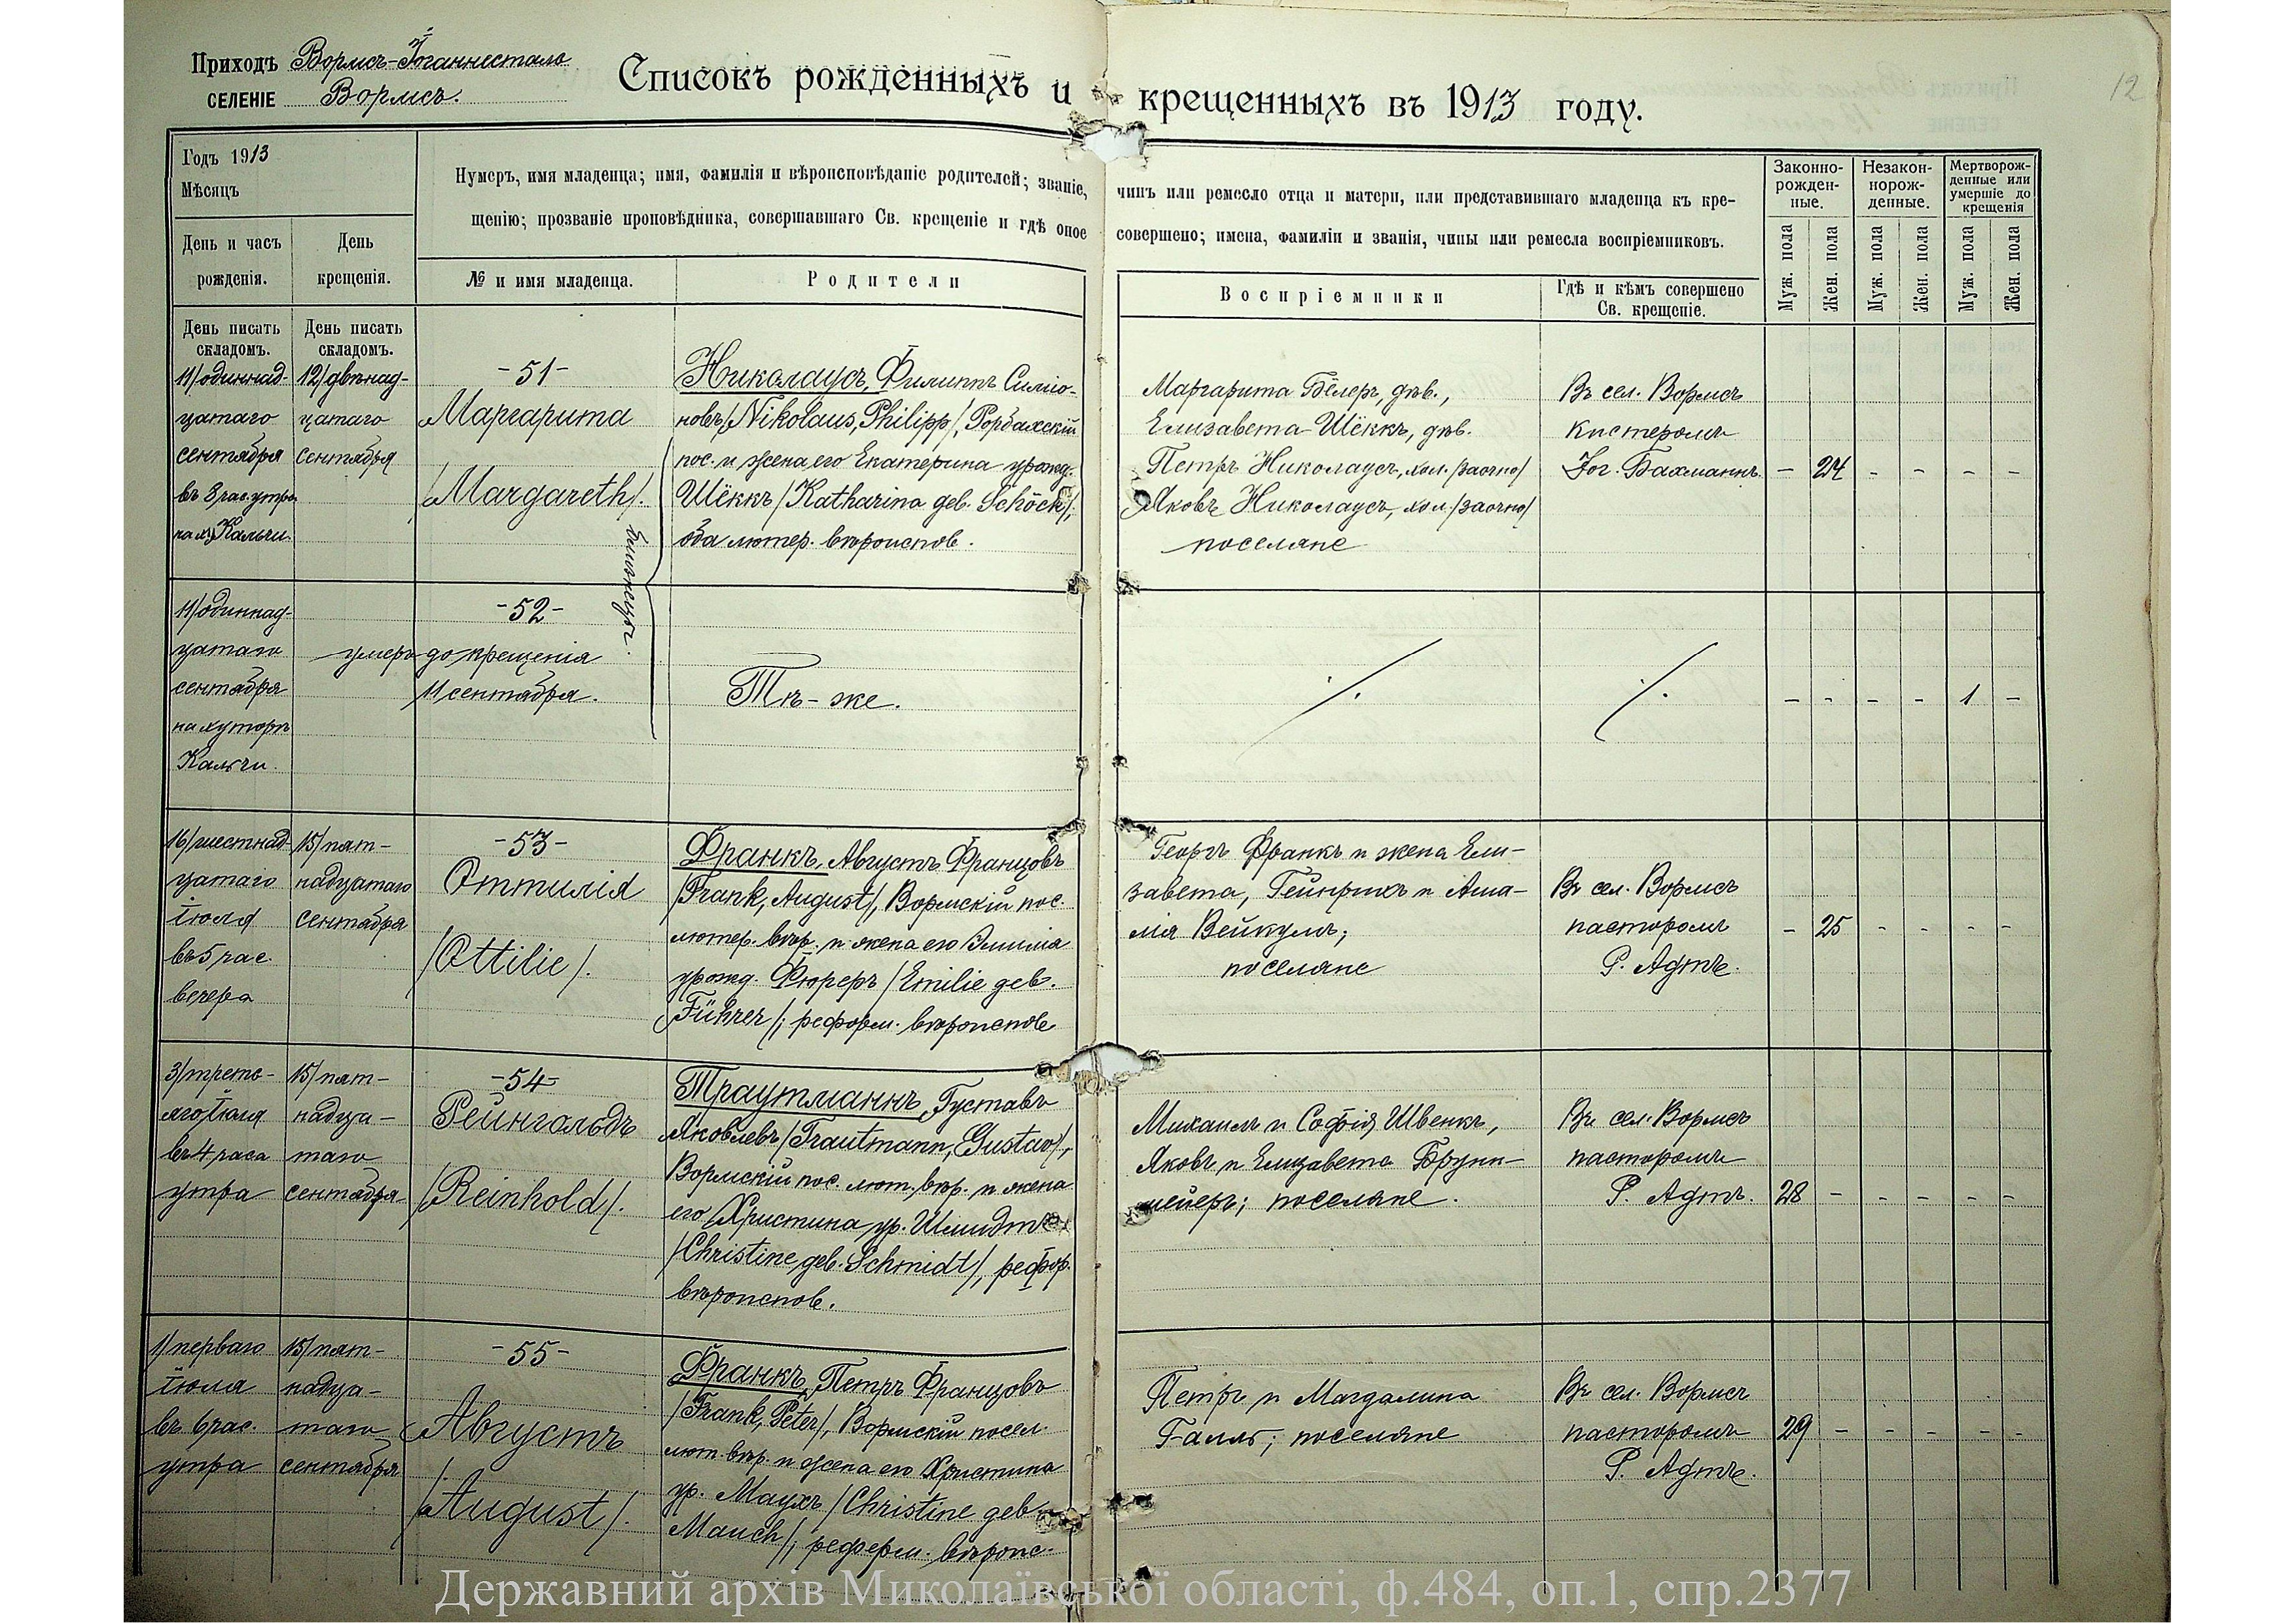 Приходъ Вормсъ-Іоганнесталь
СЕЛЕНІЕ Вормсъ.
Списокъ рожденныхъ и крещенныхъ въ 1913 году.
12
Годъ 1913
Мѣсяцъ
День и часъ рожденія.
День крещенія.
Нумеръ, имя младенца; имя, фамилія и вѣроисповѣданіе родителей; званіе, чинъ или ремесло отца и матери, или представившаго младенца къ кре-
щенію; прозваніе проповѣдника, совершавшаго Св. крещеніе и гдѣ оное совершено; имена, фамиліи и званія, чины или ремесла воспріемниковъ.
№ и имя младенца.
Родители
Воспріемники
Гдѣ и кѣмъ совершено
Св. крещеніе.
Законно-
рожден-
ные.
Незакон-
норож-
денные.
Мертворож-
денные или
умершіе до
крещенія
Муж. пола
Жен. пола
Муж. пола
Жен. пола
Муж. пола
Жен. пола
День писать
складомъ.
День писать
складомъ.
11/одиннад-
цатаго
сентября
въ 8 час. утра
на х. Кальчи.
12/двѣнад-
цатаго
сентября
-51-
Маргарита
/Margareth/.
близнецы.
Николаусъ, Филиппъ Симіо-
новъ/Nikolaus, Philipp/, Рорбахскій
пос. и жена его Екатерина урожд.
Шёккъ/Katharina geb. Schöck/;
оба лютер. вѣроиспов.
Маргарита Бёлеръ, дѣв.,
Елизавета Шёккъ, дѣв.
Петръ Николаусъ, хол. /заочно/
Яковъ Николаусъ, хол. /заочно/
поселяне
Въ сел. Вормсъ
кистеромъ
Іог. Бахманнъ.
- 24 - - - -
11/одиннад-
цатаго
сентября
на хуторѣ
Кальчи.
-52-
умеръ до крещенія
11 сентября.
Тѣ-же.
·/.
·/.
- - - - 1 -
16/шестнад-
цатаго
іюля
въ 5 час.
вечера
15/пят-
надцатаго
сентября
-53-
Оттилія
/Ottilie/.
Франкъ, Августъ Францовъ
/Frank, August/, Вормскій пос.
лютер. вѣр. и жена его Эмилія
урожд. Фюреръ /Emilie geb.
Führer/; реформ. вѣроиспов
Георгъ Франкъ и жена Ели-
завета, Гейнрихъ и Ама-
лія Вейкумъ;
поселяне
Въ сел. Вормсъ
пасторомъ
Р. Адтъ.
- 25 - - - -
3/треть-
яго іюля
въ 4 часа
утра
15/пят-
надца-
таго
сентября
-54-
Рейнгольдъ
/Reinhold/.
Траутманнъ, Густавъ
Яковлевъ/Trautmann, Gustav/,
Вормскій пос. лют. вѣр. и жена
его Христина ур. Шмидтъ
/Christine, geb. Schmidt/, рефор.
вѣроиспов.
Михаилъ и Софія Швенкъ,
Яковъ и Елизавета Брунн-
мейеръ; поселяне.
Въ сел. Вормсъ
пасторомъ
Р. Адтъ.
28 - - - - -
1/перваго
іюля
въ 6 час.
утра
15/пят-
надца-
таго
сентября
-55-
Августъ
/August/.
Франкъ, Петръ Францовъ
/Frank, Peter/, Вормскій посел
лют. вѣр. и жена его Христина
ур. Маухъ /Christine geb.
Mauch/; реформ. вѣроис.
Петръ и Магдалина
Галль; поселяне
Въ сел. Вормсъ
пасторомъ
Р. Адтъ.
29 - - - - -
Державний архів Миколаївської області, ф.484, оп.1, спр.2377